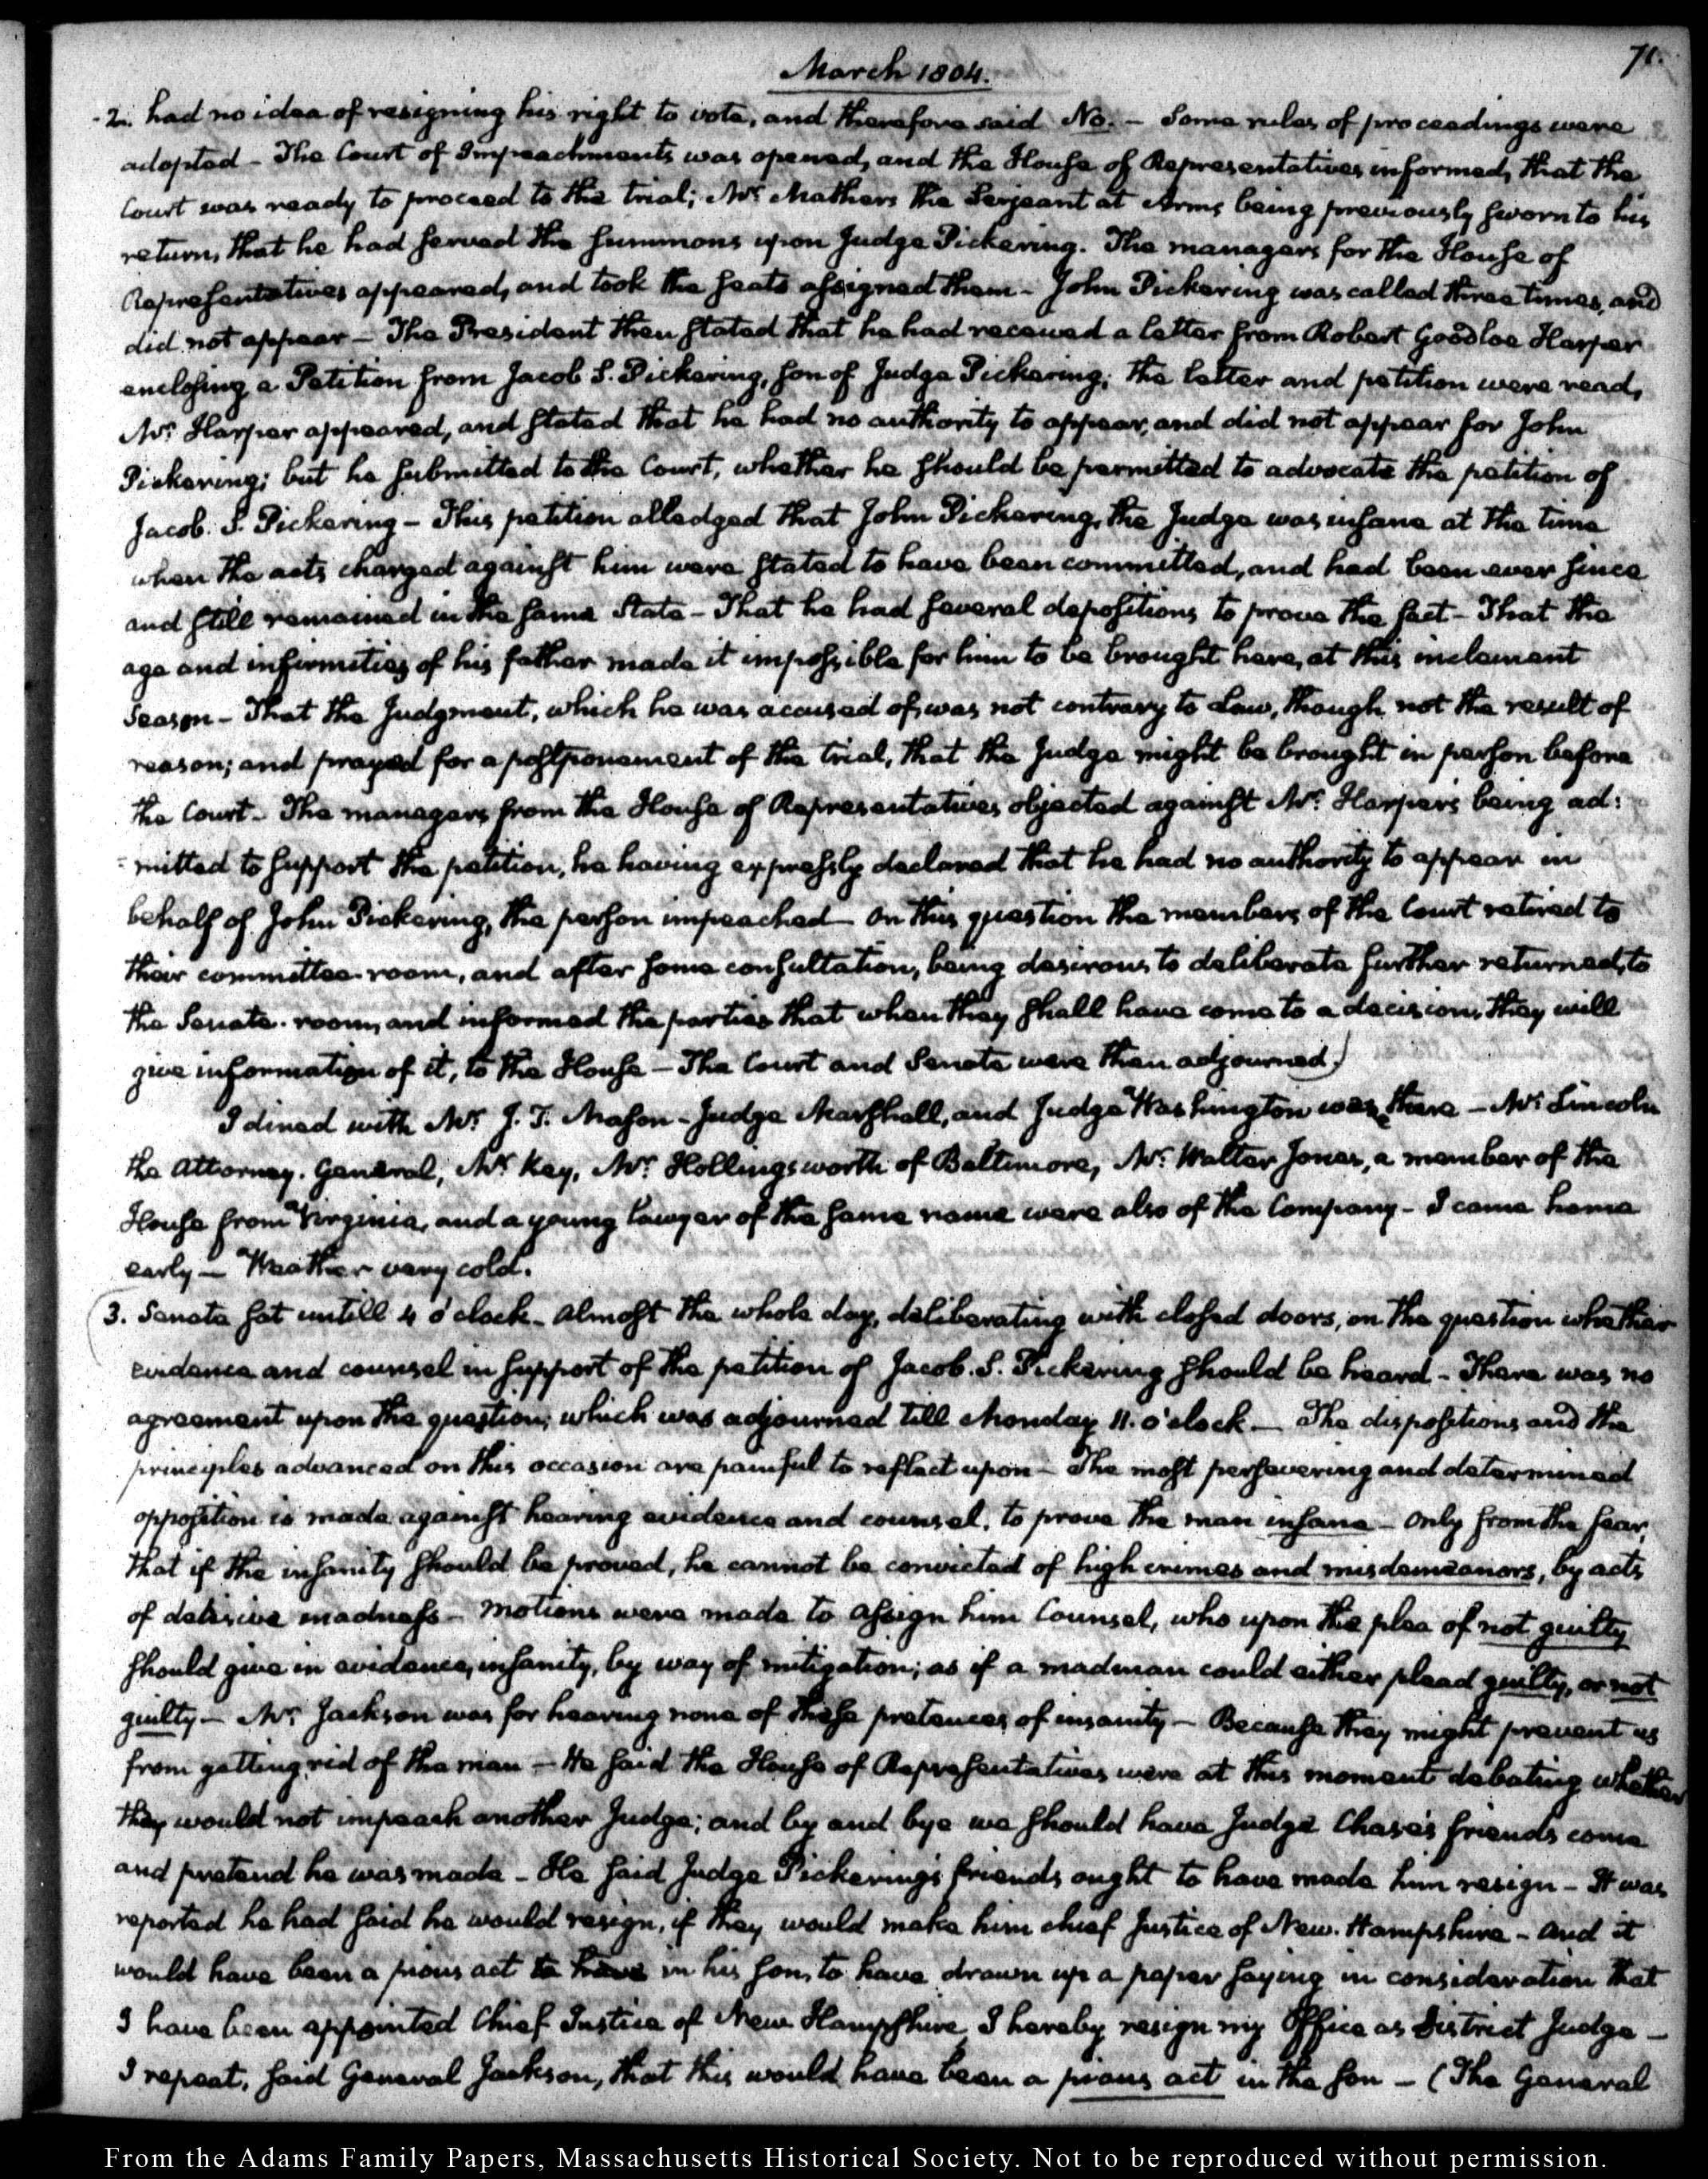 March 1804.
71.
2. had no idea of resigning his right to vote, and therefore said No. – Some rules of proceedings were
adopted – The Court of Impeachments was opened, and the House of Representatives informed, that the
Court was ready to proceed to the trial; Mr. Mathers the Serjeant at Arms being previously sworn to his
return, that he had served the summons upon Judge Pickering. The managers for the House of
Representatives appeared, and took the seats assigned them – John Pickering was called three times, and
did not appear – The President then stated that he had received a letter from Robert Goodloe Harper
enclosing a Petition from Jacob S. Pickering, son of Judge Pickering; the letter and petition were read,
Mr. Harper appeared, and stated that he had no authority to appear, and did not appear for John
Pickering; but he submitted to the Court, whether he should be permitted to advocate the petition of
Jacob. S. Pickering – This petition alledged that John Pickering, the Judge was insane at the time
when the acts charged against him were stated to have been committed, and had been ever since
and still remained in the same State – That he had several depositions to prove the fact – That the
age and infirmities of his father made it impossible for him to be brought here, at this inclement
Season – That the Judgment, which he was accused of, was not contrary to Law, though not the result of
reason; and prayed for a postponement of the trial, that the Judge might be brought in person before
the Court – The managers from the House of Representatives objected against Mr. Harper's being ad:
mitted to support the petition, he having expressly declared that he had no authority to appear in
behalf of John Pickering, the person impeached – On this question the members of the Court retired to
their committee-room, and after some consultation, being desirous to deliberate further returned, to
the Senate-room, and informed the parties that when they shall have come to a decision, they will
give information of it, to the House – The Court and Senate were then adjourned.)
I dined with Mr. J. T. Mason – Judge Marshall, and Judge Washington were there – Mr. Lincoln
the Attorney. General, Mr. Key, Mr. Hollingsworth of Baltimore, Mr. Walter Jones, a member of the
House from Virginia, and a young lawyer of the same name were also of the Company – I came home
early – Weather very cold.
3. Senate sat untill 4 o'clock – Almost the whole day, deliberating with closed doors, on the question whether
evidence and counsel in support of the petition of Jacob. S. Pickering should be heard – There was no
agreement upon the question; which was adjourned till Monday 11. o'clock – The dispositions and the
principles advanced on this occasion are painful to reflect upon – The most persevering and determined
opposition is made against hearing evidence and counsel, to prove the man insane – Only from the fear,
that if the insanity should be proved, he cannot be convicted of high crimes and misdemeanors, by acts
of decisive madness – Motions were made to assign him Counsel, who upon the plea of not guilty
should give in evidence, insanity, by way of mitigation; as if a madman could either plead guilty, or not
guilty – Mr. Jackson was for hearing none of these pretences of insanity – Because they might prevent us
from getting rid of the man – He said the House of Representatives were at this moment debating whether
they would not impeach another Judge; and by and bye we should have Judge Chase's friends come
and pretend he was made – He said Judge Pickering's friends ought to have made him resign – It was
reported he had said he would resign, if they would make him chief Justice of New. Hampshire – And it
would have been a pious act to have in his son, to have drawn up a paper saying in consideration that
I have been appointed Chief Justice of New Hampshire, I hereby resign my Office as District Judge –
I repeat, said General Jackson, that this would have been a pious act in the son – (The General
From the Adams Family Papers, Massachusetts Historical Society. Not to be reproduced without permission.